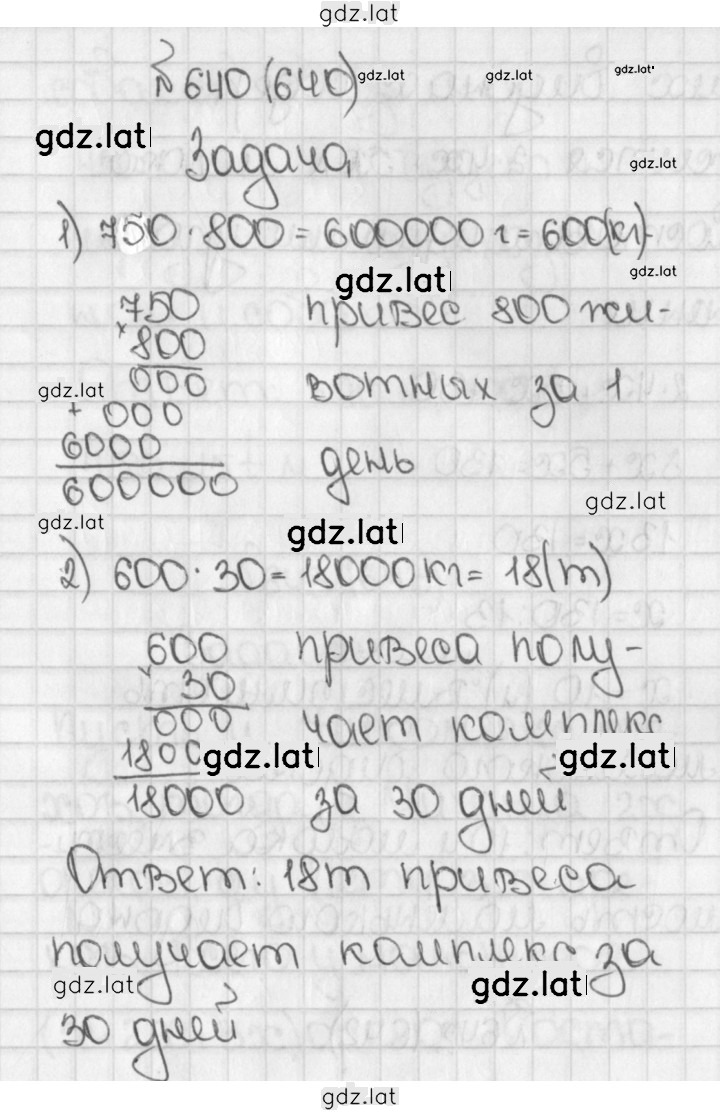 gdz.lat
№ 640 (640) gdz.lat gdz.lat gdz.lat
gdz.lat
Задача gdz.lat
1) 750 · 800 = 600000 г = 600(кг)-
gdz.lat gdz.lat
750 привес 800 жи-
× 800
gdz.lat 000 вотных за 1
+ 000
6000 день
600000
gdz.lat
gdz.lat gdz.lat
2) 600 · 30 = 18000 кг = 18(т)
600 привеса полу-
× 30
000 чает комплекс
1800 gdz.lat gdz.lat
18000 за 30 дней
Ответ: 18т привеса
получает комплекс за
gdz.lat gdz.lat
30 дней
gdz.lat